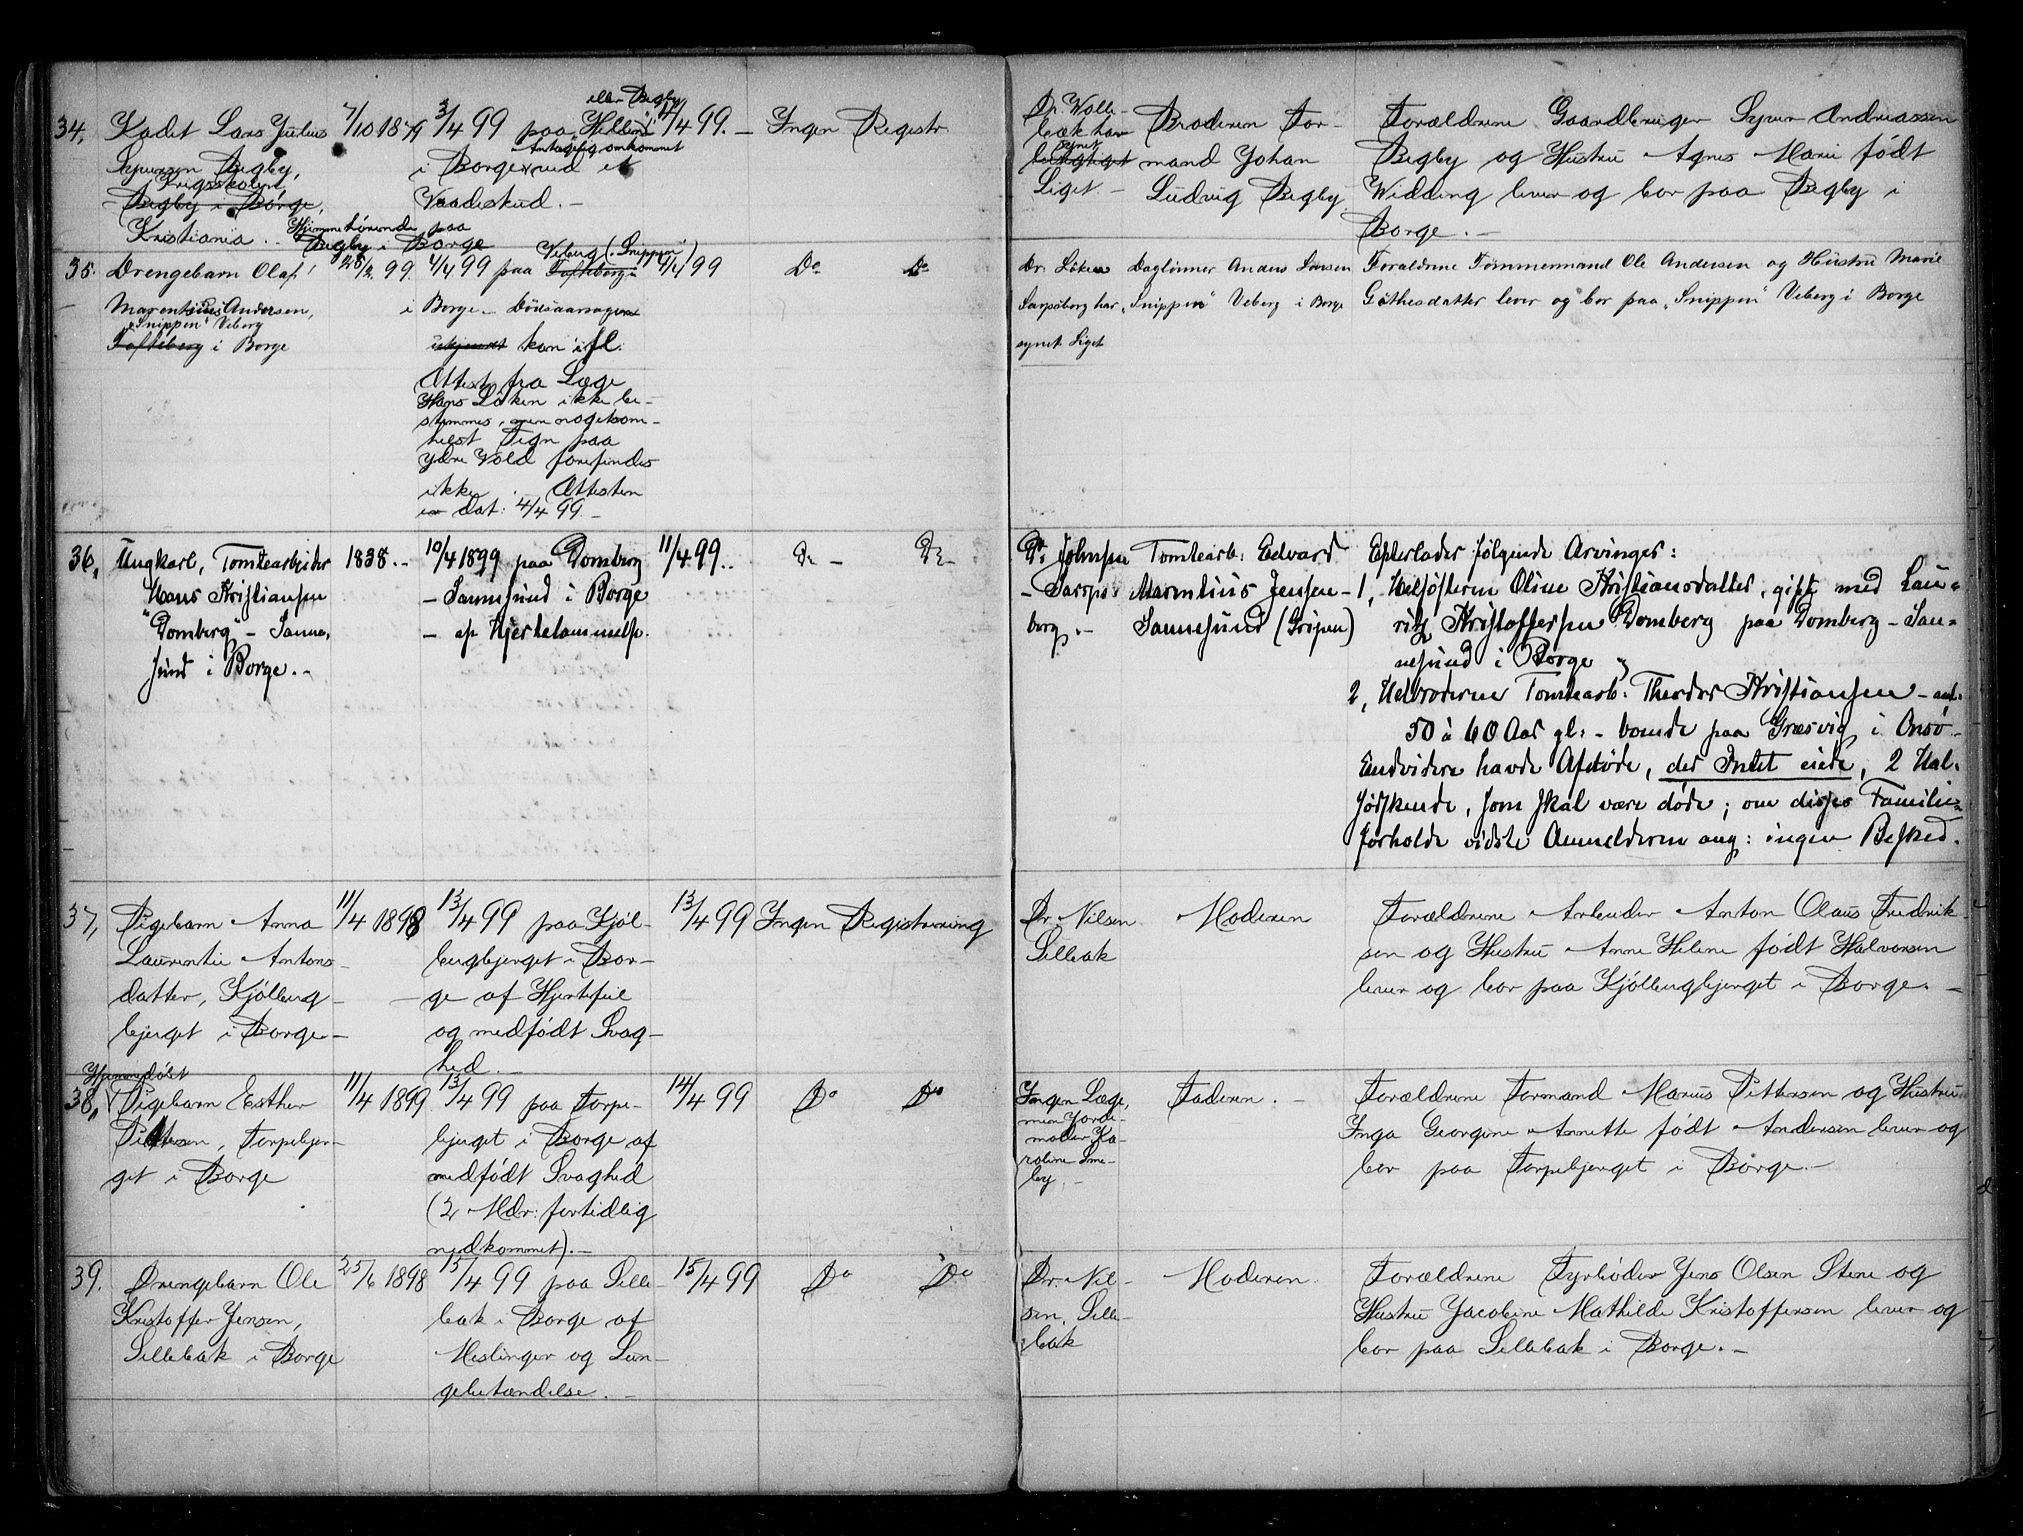 34, Kadet Lars Julius
Syversen Begby,
i Krigsskolen,
Begby i Borge,
Kristiania. - Hjemmehørende paa
Begby i Borge
7/10 1879
eller Begby
3/4 99 paa "Hellen"
Antagelig omkommet
i Borge ved et
Vaadeskud. -
4/4 99. -
Ingen Registr.
Dr. Wolle-
bæk har
synet
besigtiget
Liget. -
Broderen For-
mand Johan
Ludvig Begby
Forældrene Gaardbruger Syver Andreassen
Begby og Hustru Agnes Marie født
Widding lever og bor paa Begby i
Borge. -
35. Drengebarn Olaf
Marentius Andersen,
"Snippen" Veberg
Tofteberg i Borge
28/2 99.
Veberg ("Snippen")
4/4 99 paa Toftberg i
i Borge. Dødsaarsagen
ukjendt kan ifl.
Attest fra Læge
Hans Løken ikke be-
stemmes, men nogetsom-
helst Tegn paa
ydre Vold forefindes
ikke. Attesten
er dat: 4/4 99. -
4/4 99
Do Do
Dr. Løken
Sarpsborg har
synet Liget
Daglønner Anders Larsen
"Snippen" Veberg i Borge
Forældrene Tømmermand Ole Andersen og Hustru Marie
Göthesdatter lever og bor paa "Snippen" Veberg i Borge
36, Ungkarl, Tomtearbeider
Hans Kristiansen
"Domberg" - Sanne-
sund i Borge. -
1838. -
10/4 1899 paa Domberg
- Sannesund i Borge
- af Hjertelammelse.
11/4 99.
Do - Do -
Dr. Johnsen
- Sarps-
borg. -
Tomtearb: Edvard
Marentius Jensen -
Sannesund (Grisen)
Efterlader følgende Arvinger:
1, Helsøsteren Oline Kristiansdatter, gift med Lau-
ritz Kristoffersen Domberg paa Domberg - San-
nesund i Borge og
2, Helbroderen Tomtearb: Theodor Kristiansen - ant.
50 à 60 Aar gl: - boende paa Græsvig i Onsø. -
Endvidere havde Afdøde, der Intet eiede, 2 Hal-
søskende, som skal være døde; om disses Familie-
forholde vidste Anmelderen ang: ingen Besked.
37, Pigebarn Anna
Laurentie Antons-
datter, Kjølberg-
bjerget i Borge -
11/4 1898
13/4 99 paa Kjøl-
bergbjerget i Bor-
ge af Hjertefeil
og medfødt Svag-
hed. -
13/4 99
Ingen Registrering
Dr. Nilsen
Lillebak
Moderen
Forældrene Arbeider Anton Olaus Fredrik-
sen og Hustru Anne Helene født Halvorsen
lever og bor paa Kjølbergbjerget i Borge. -
Hjemmedøbt
38, Pigebarn Esther
Pettersen, Torpebjer-
get i Borge
11/4 1899
13/4 99 paa Torpe-
bjerget i Borge af
medfødt Svaghed
(2 Mdr: fortidlig
nedkommet). -
14/4 99
Do Do
Ingen Læge,
men Jorde-
moder Ka-
roline Sme-
by. -
Faderen. -
Forældrene Formand Marius Pettersen og Hustru
Inga Georgine Annette født Andersen lever og
bor paa Torpebjerget i Borge. -
39. Drengebarn Ole
Kristoffer Jensen,
Lillebak i Borge
25/6 1898
15/4 99 paa Lille-
bak i Borge af
Meslinger og Lun-
gebetændelse. -
15/4 99
Do Do
Dr. Nil-
sen, Lille-
bak
Moderen
Forældrene Fyrbøder Jens Olsen Stene og
Hustru Jacobine Mathilde Kristoffersen lever og
bor paa Lillebak i Borge. -